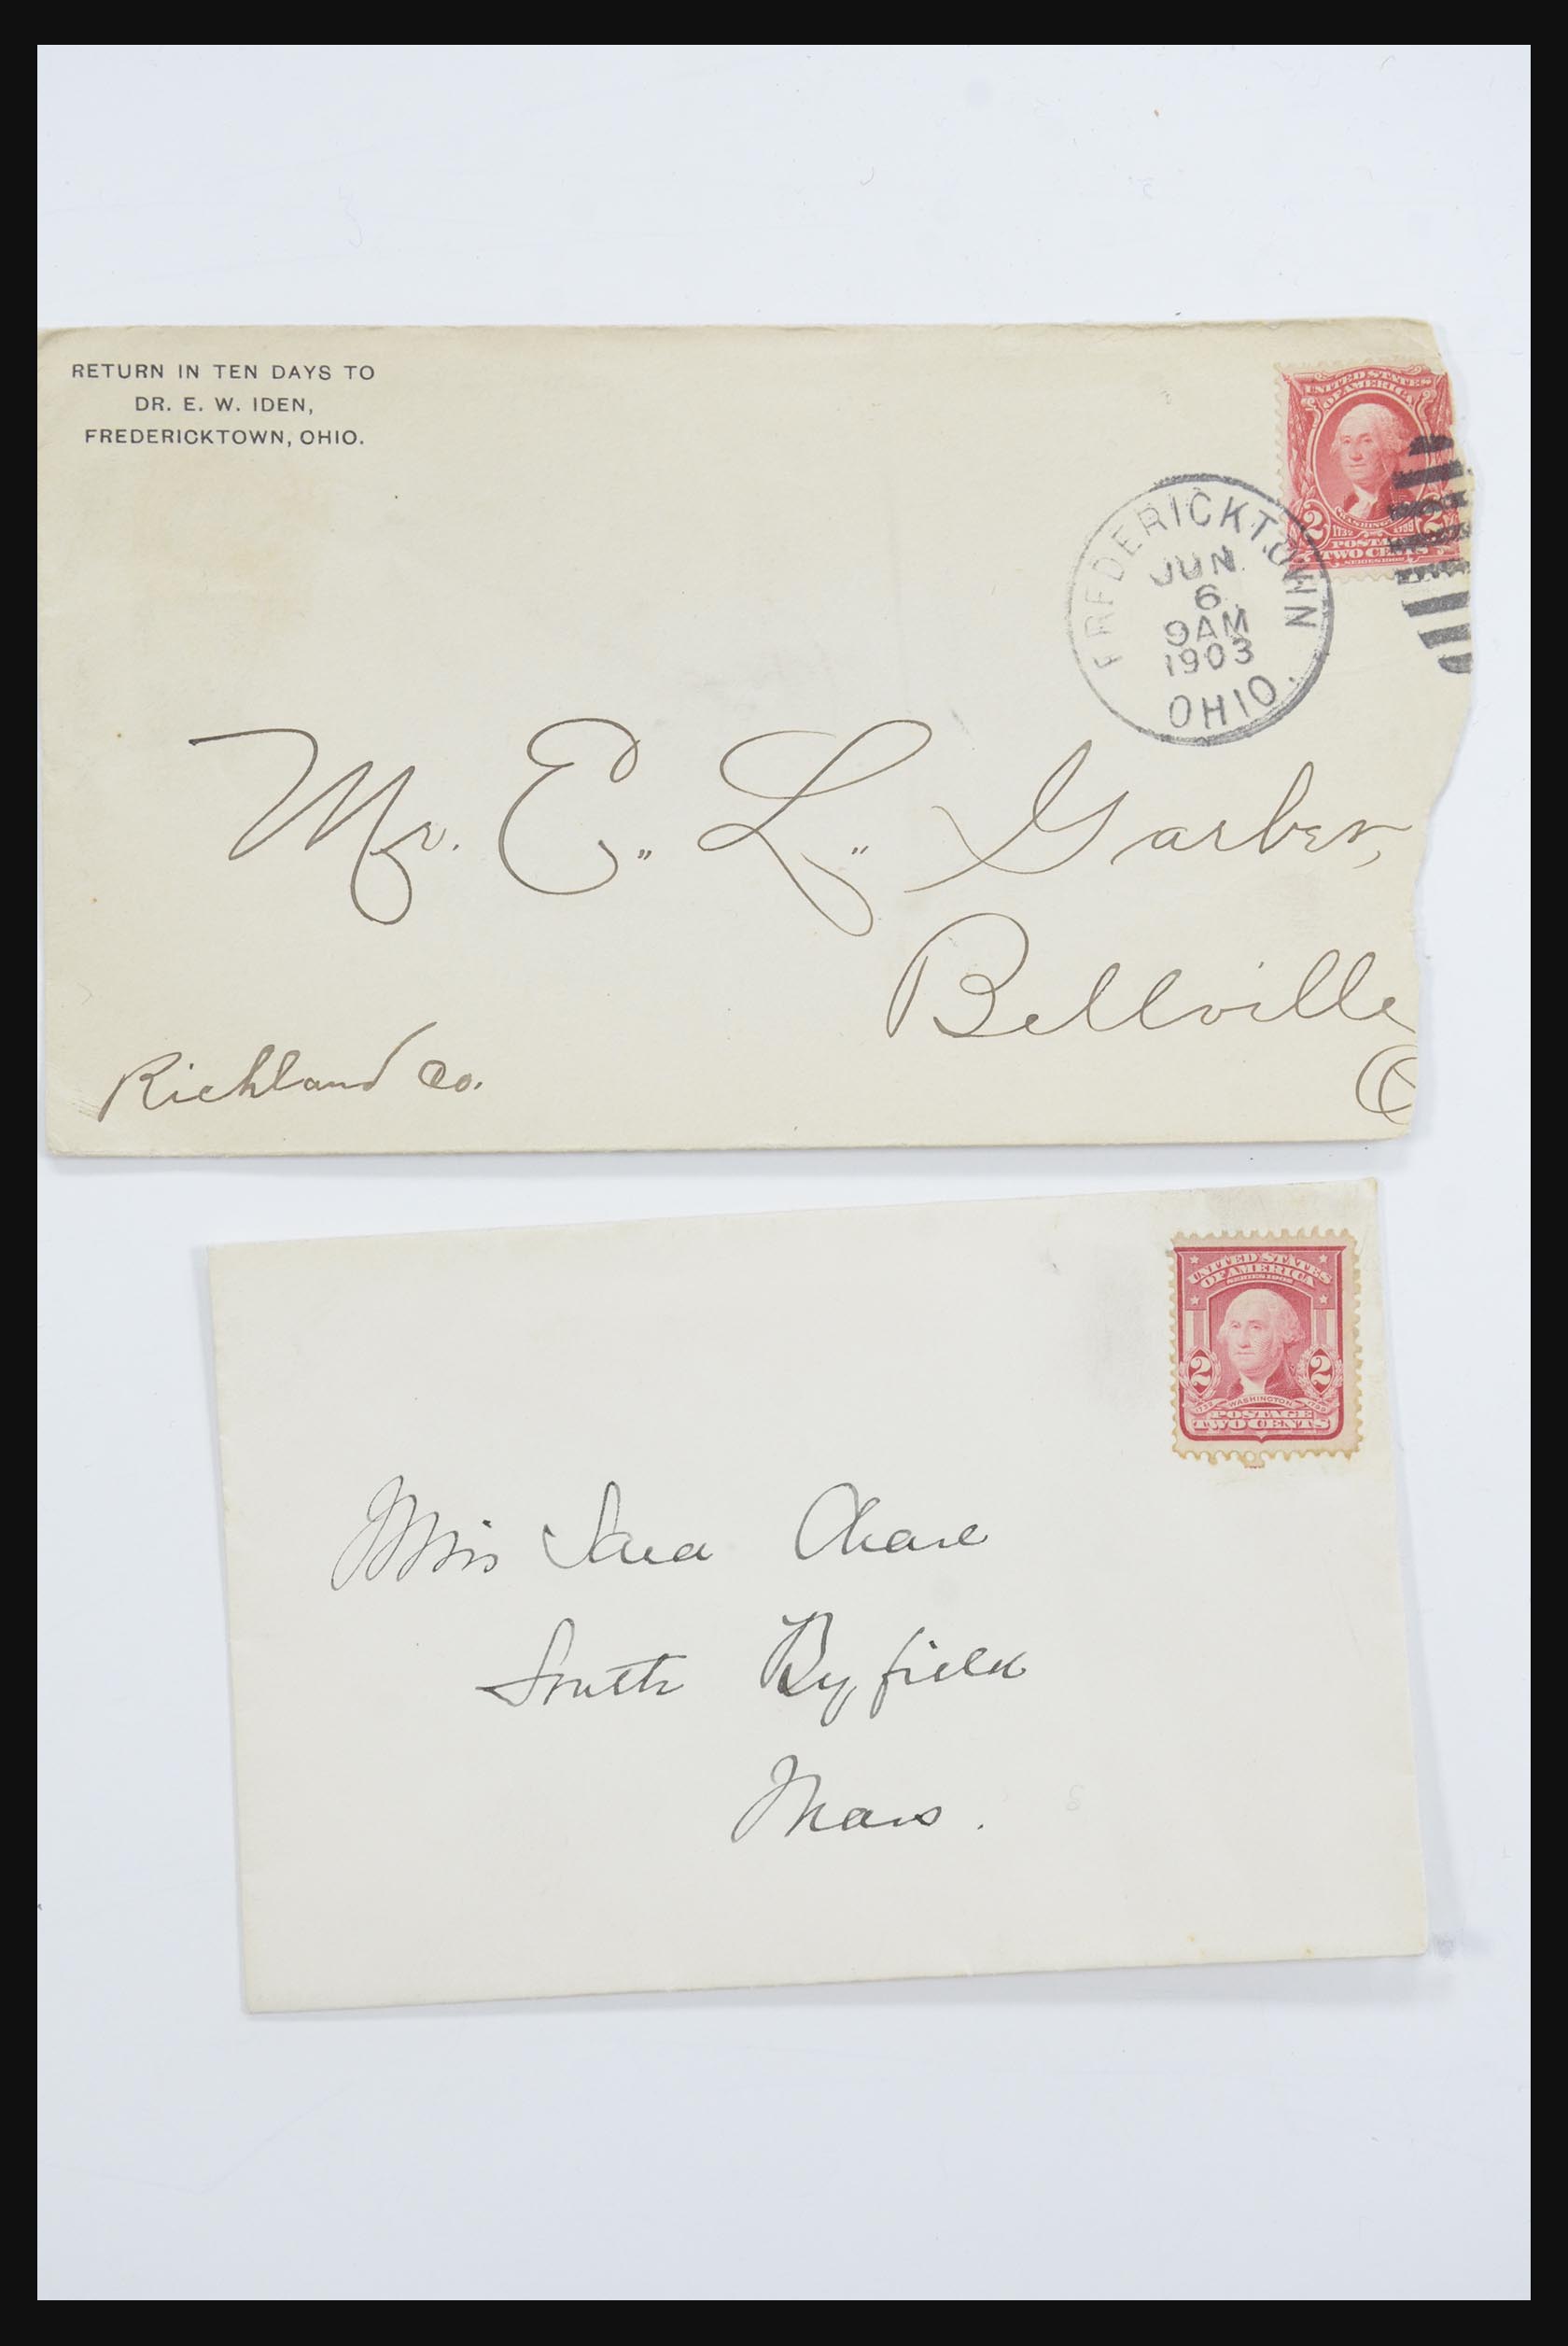 RETURN IN TEN DAYS TO
DR. E. W. IDEN,
FREDERICKTOWN, OHIO.
UNITED STATES
OF AMERICA
2 2
1732 1799
POSTAGE
TWO CENTS
FREDERICKTOWN
JUN
6
9AM
1903
OHIO.
Mr. E. L. Garber,
Bellville
O
Richland Co.
UNITED STATES
OF AMERICA
SERIES 1902
2 2
1732 WASHINGTON 1799
POSTAGE
TWO CENTS
Miss Sara Chase
South Byfield
Mass.